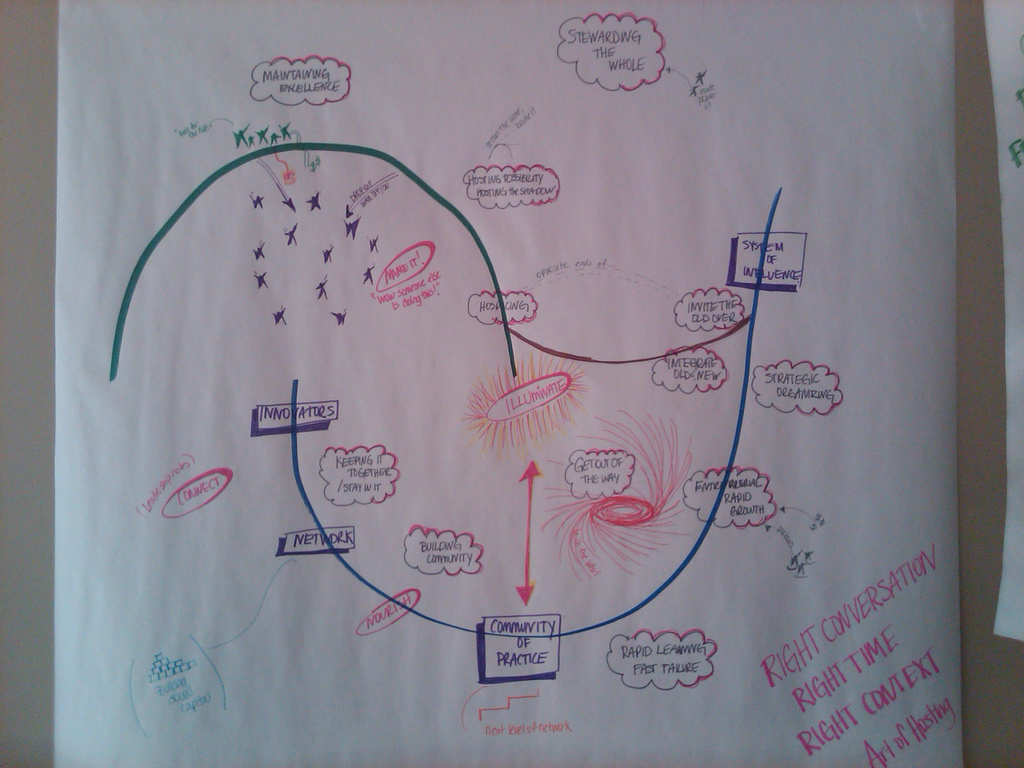 STEWARDING
THE
WHOLE
MAINTAINING
EXCELLENCE
HOSTING POSSIBILITY
HOSTING THE SHADOW
SYSTEM
OF
INFLUENCE
NAME IT!
"WOW someone else
is doing this!"
opposite ends of
HOSPICING
INVITE THE
OLD OVER
INTEGRATE
OLD & NEW
STRATEGIC
DREAMING
ILLUMINATE
INNOVATORS
KEEPING IT
TOGETHER
/STAY IN IT
GET OUT OF
THE WAY
RAPID
GROWTH
CONNECT
NETWORK
BUILDING
COMMUNITY
NOURISH
COMMUNITY
OF
PRACTICE
RAPID LEARNING
FAST FAILURE
Building
social
capital
next level of network
RIGHT CONVERSATION
RIGHT TIME
RIGHT CONTEXT
Art of Hosting